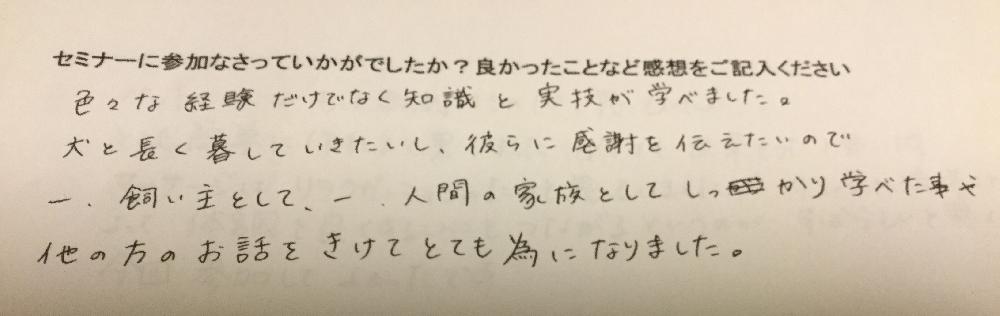 セミナーに参加なさっていかがでしたか？良かったことなど感想をご記入ください
色々な経験だけでなく知識と実技が学べました。
犬と長く暮していきたいし、彼らに感謝を伝えたいので
一、飼い主として、一、人間の家族としてしっかり学べた事や
他の方のお話をきけてとても為になりました。